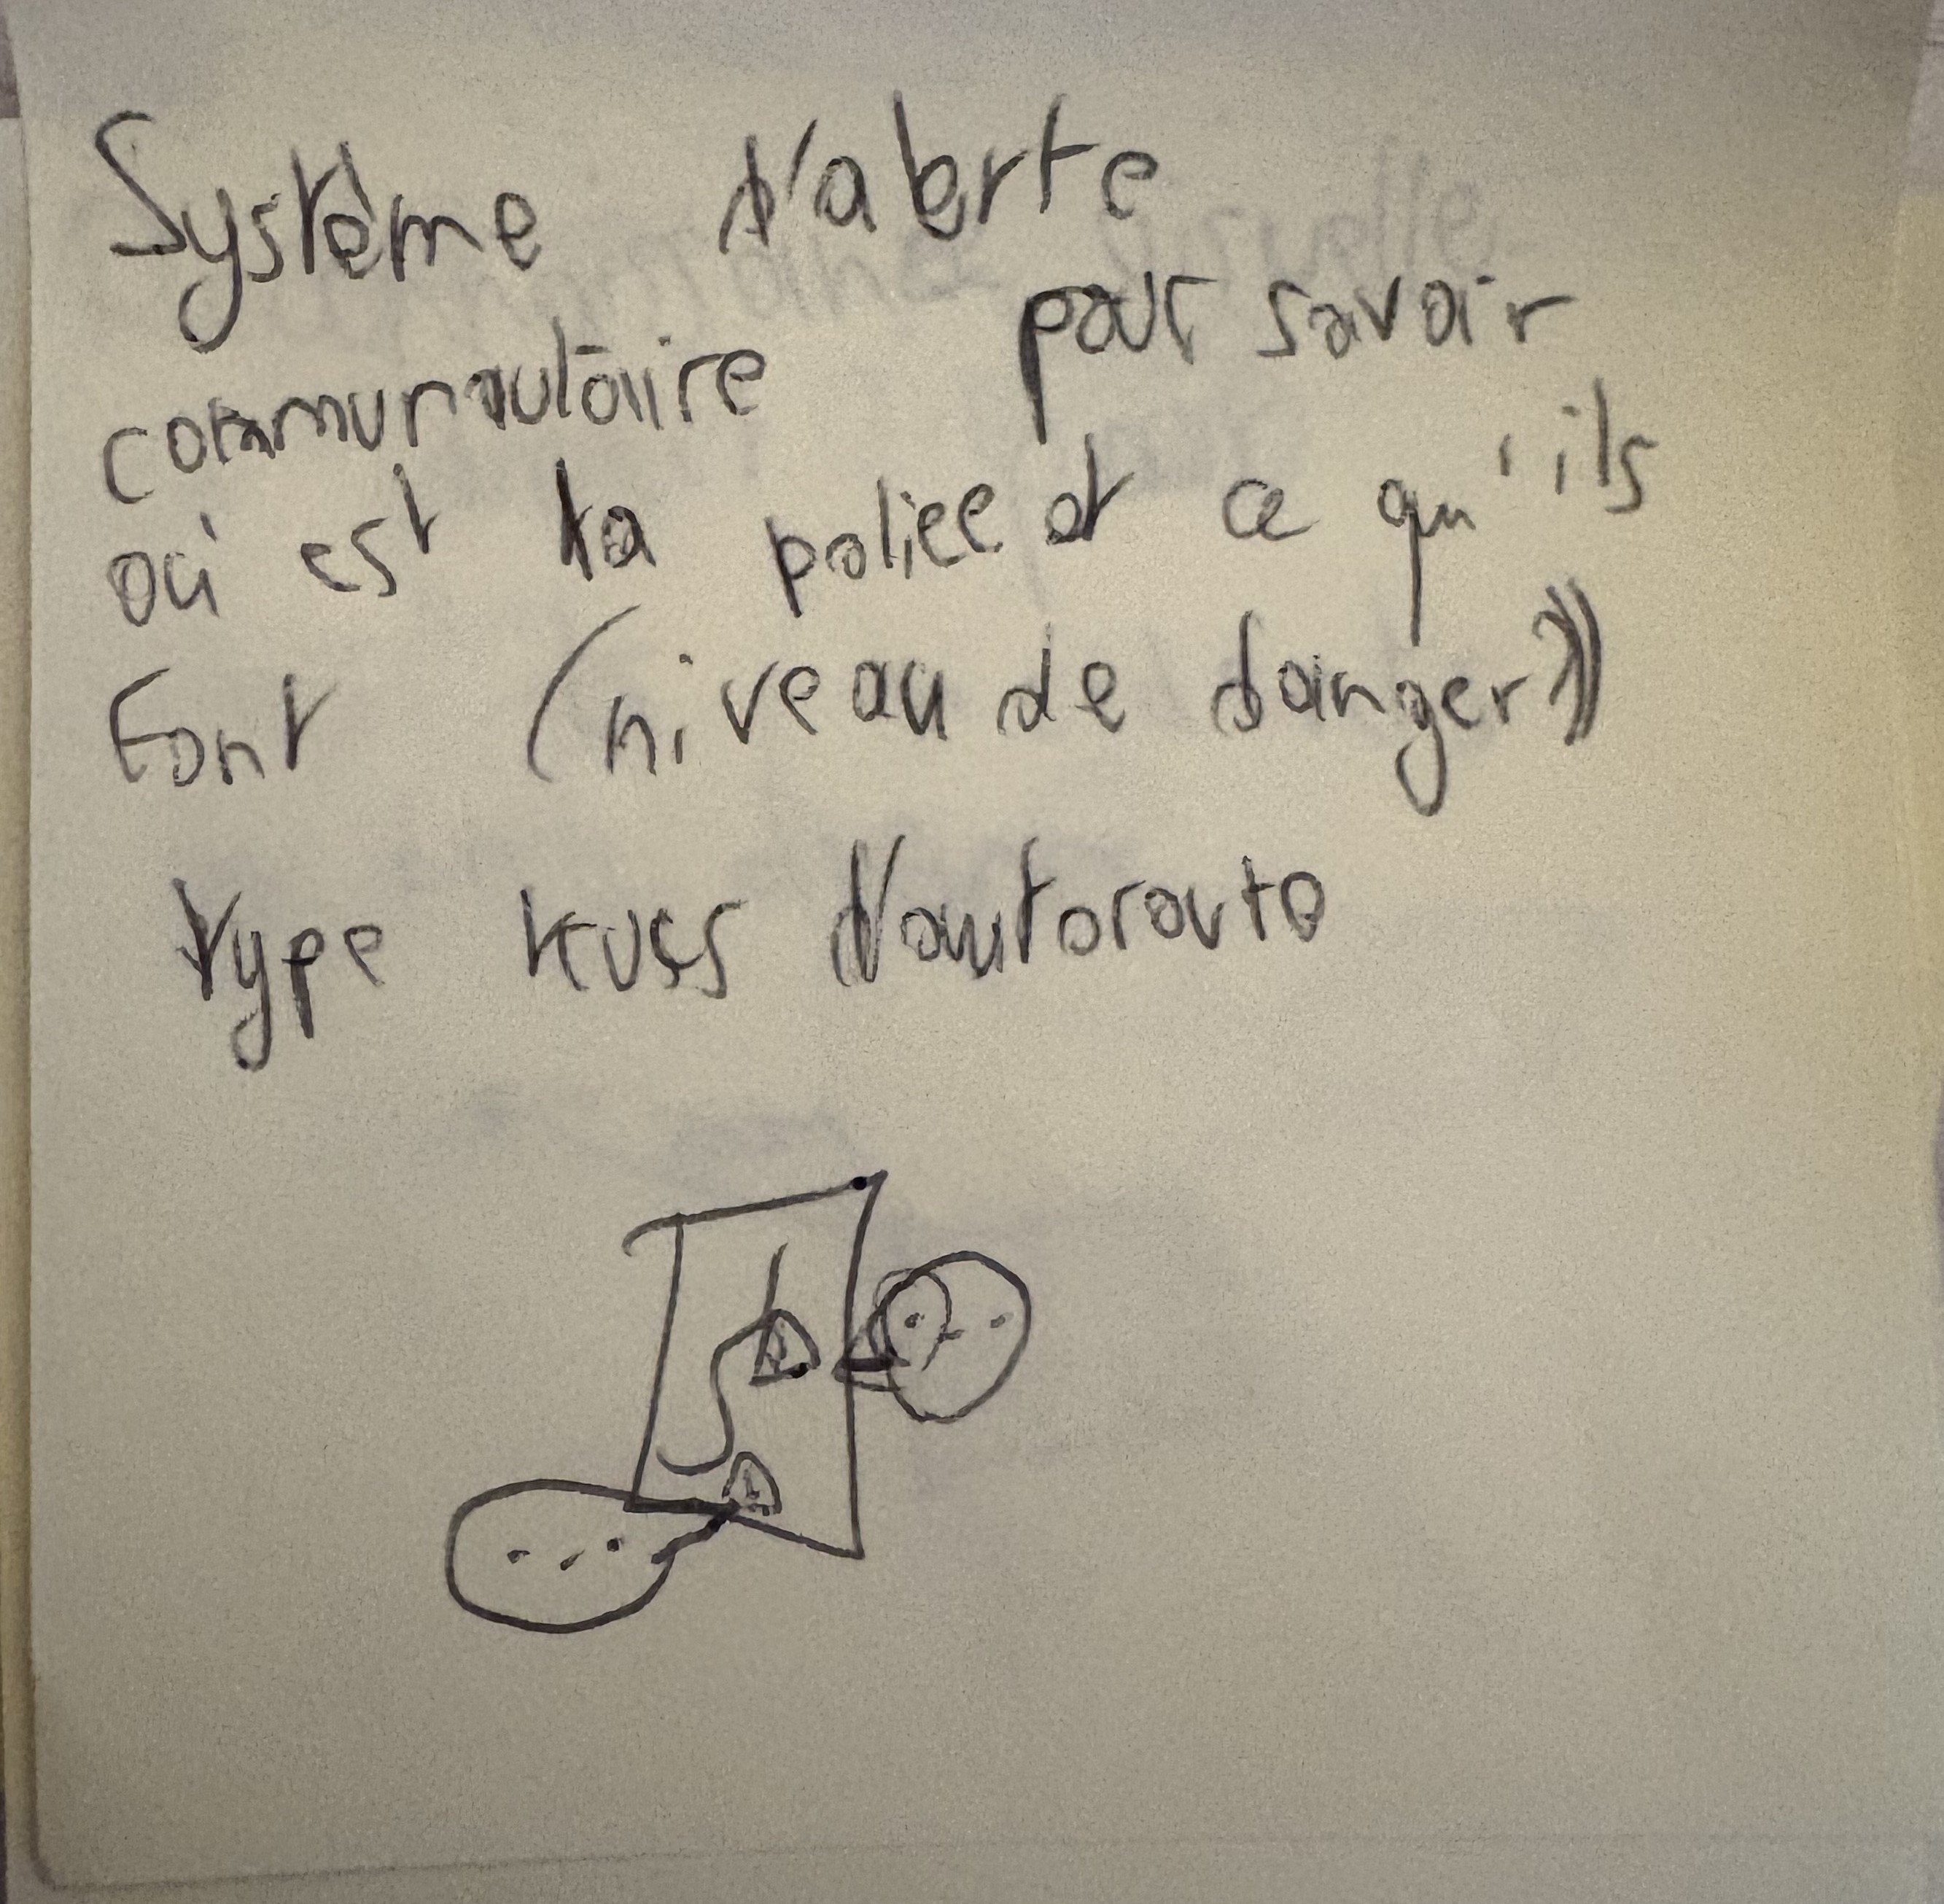 Système d'alerte
communautaire pour savoir
où est la police et ce qu'ils
font (niveau de danger)
type d'autoroute